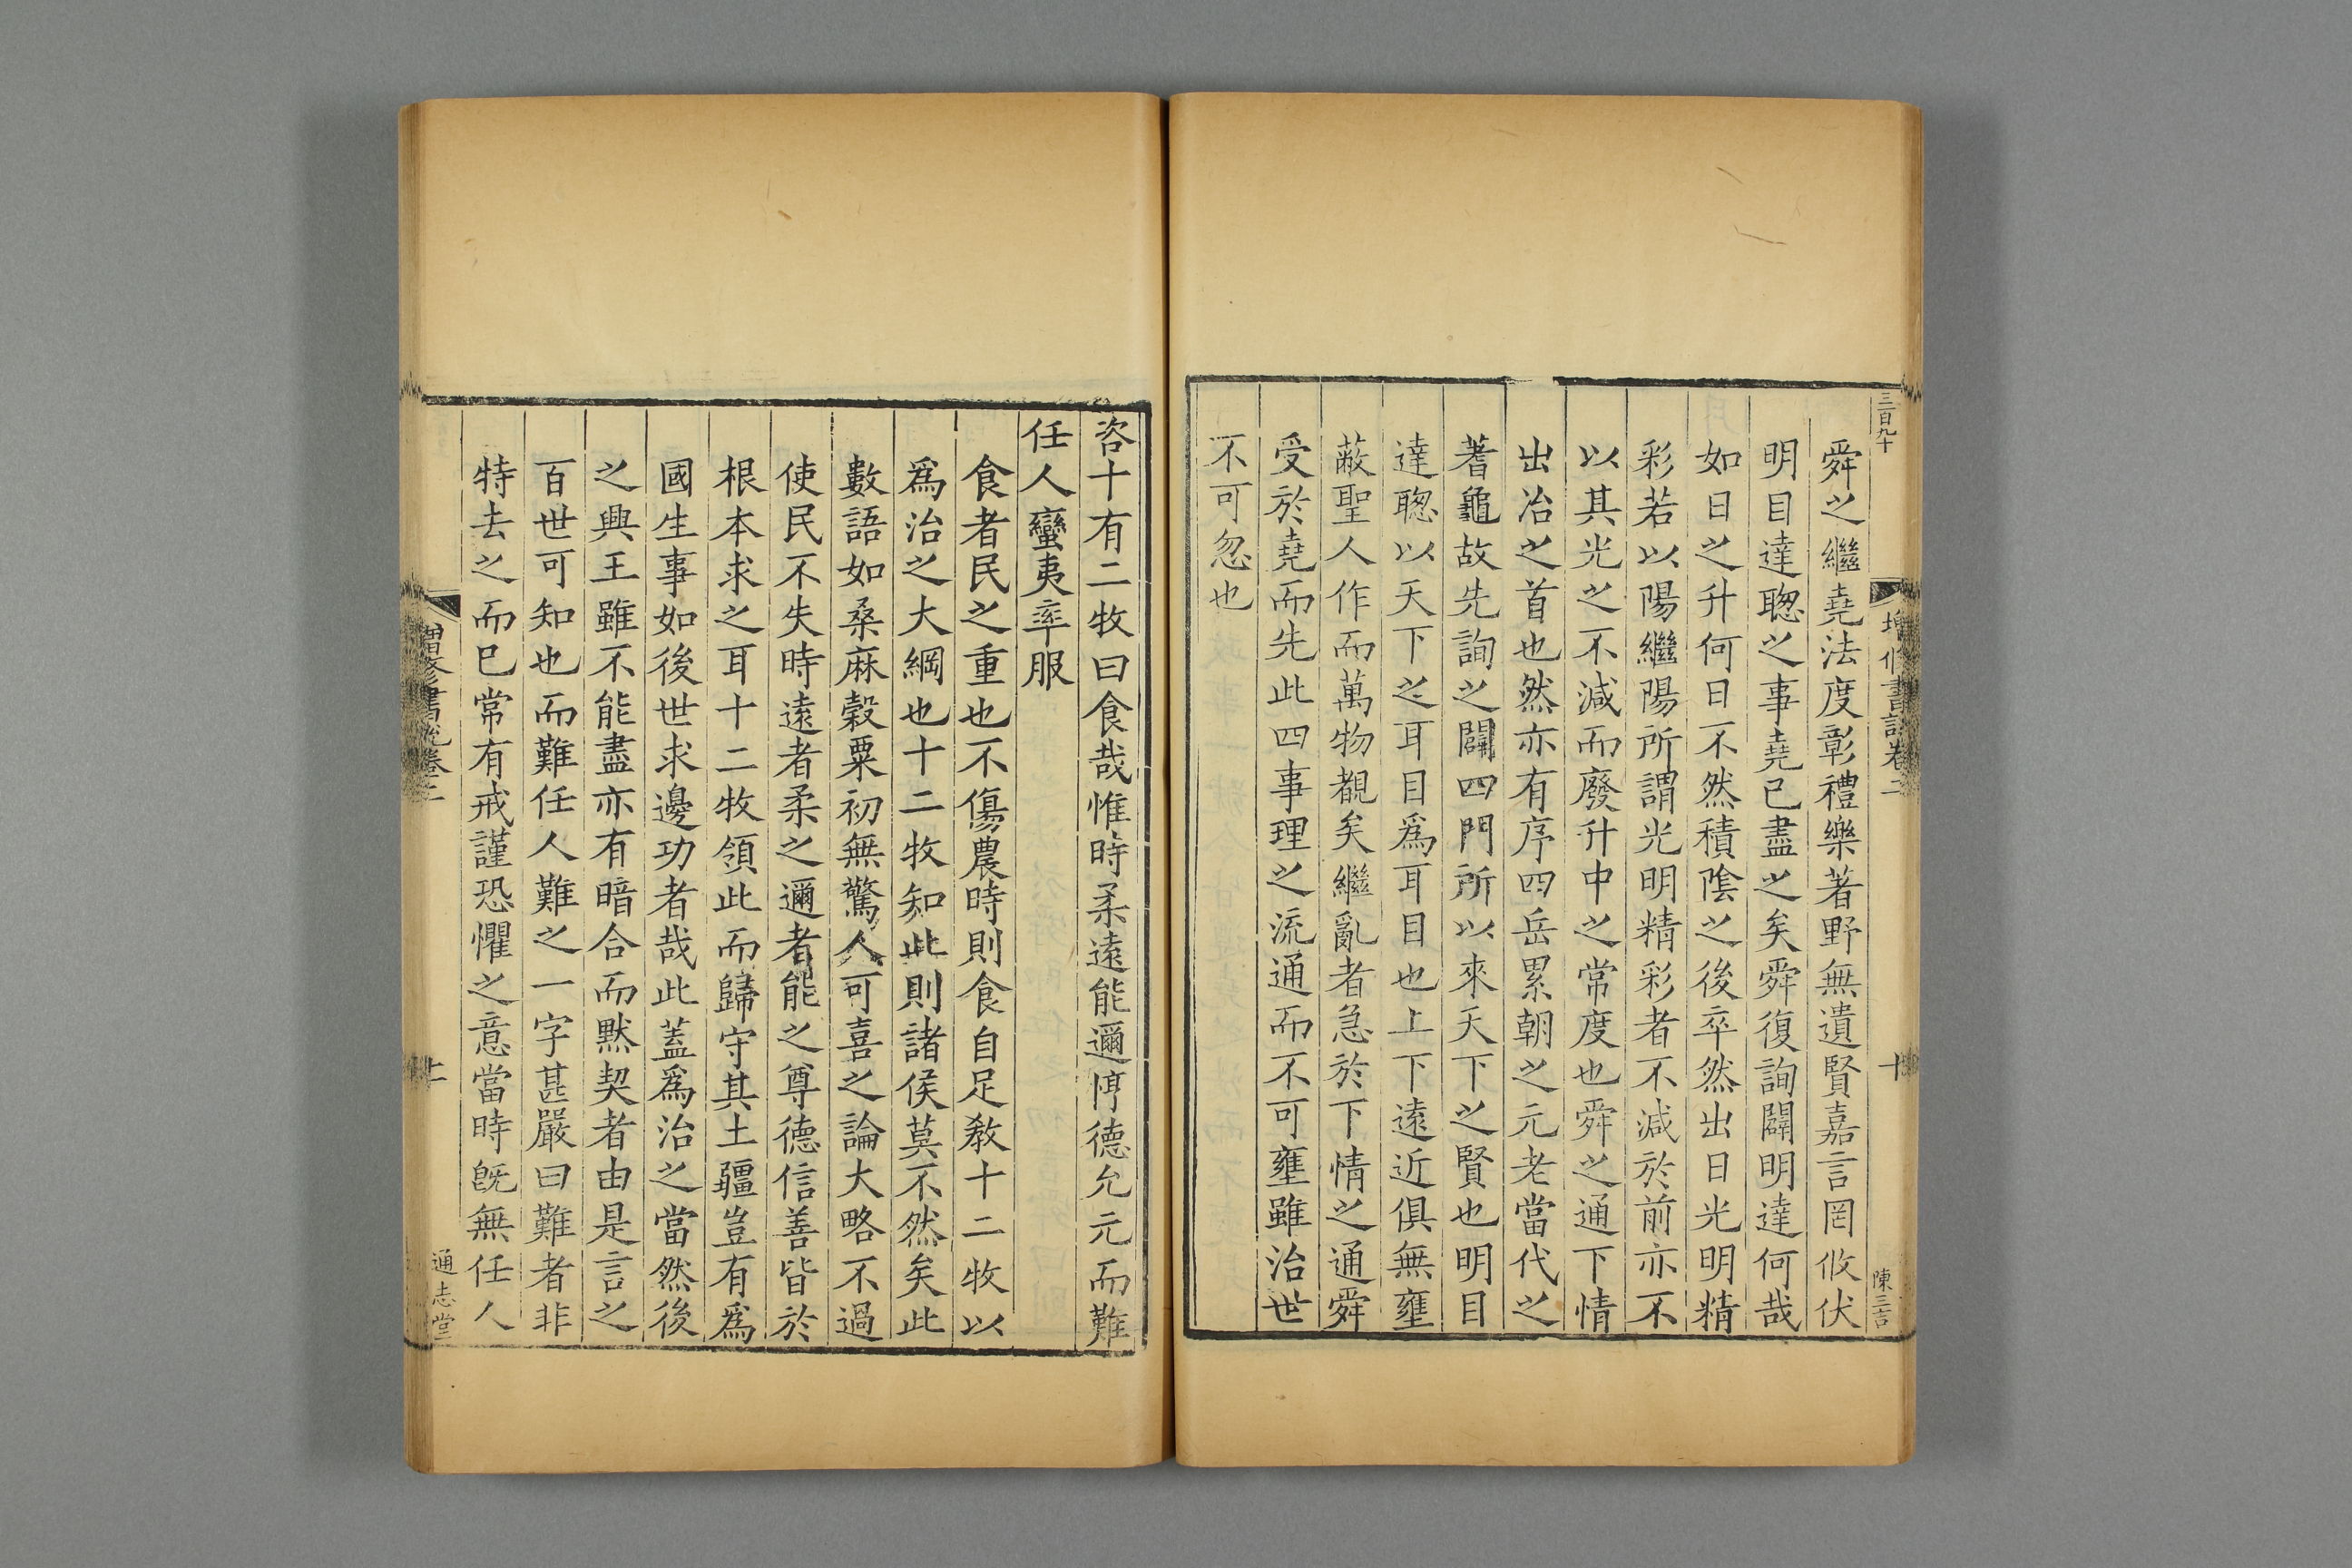 三百九十
增修書說卷二
十
陳三言
舜之繼堯法度彰禮樂著野無遺賢嘉言罔攸伏
明目達聦之事堯已盡之矣舜復詢闢明達何哉
如日之升何日不然積陰之後卒然出日光明精
彩若以陽繼陽所謂光明精彩者不減於前亦不
以其光之不減而廢升中之常度也舜之通下情
出治之首也然亦有序四岳累朝之元老當代之
蓍龜故先詢之闢四門所以來天下之賢也明目
達聦以天下之耳目爲耳目也上下遠近俱無壅
蔽聖人作而萬物覩矣繼亂者急於下情之通舜
受於堯而先此四事理之流通而不可壅雖治世
不可忽也
咨十有二牧曰食哉惟時柔遠能邇惇德允元而難
任人蠻夷率服
食者民之重也不傷農時則食自足敎十二牧以
爲治之大綱也十二牧知此則諸侯莫不然矣此
數語如桑麻穀粟初無驚人可喜之論大略不過
使民不失時遠者柔之邇者能之尊德信善皆於
根本求之耳十二牧領此而歸守其土疆豈有爲
國生事如後世求邊功者哉此蓋爲治之當然後
之興王雖不能盡亦有暗合而默契者由是言之
百世可知也而難任人難之一字甚嚴曰難者非
特去之而已常有戒謹恐懼之意當時旣無任人
增修書說卷二
通志堂